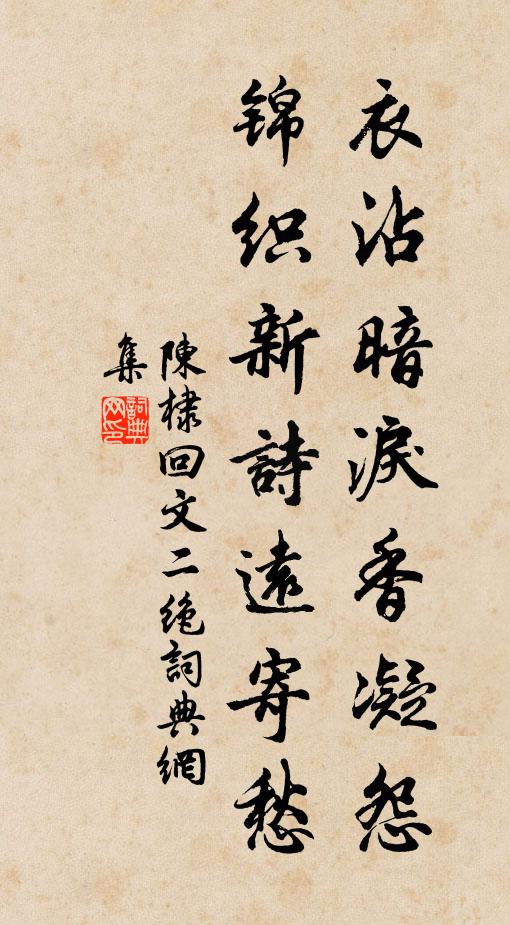 衣沾暗淚香凝怨
锦织新詩遠寄愁
陳棣回文二绝詞典網
集
詞典網印